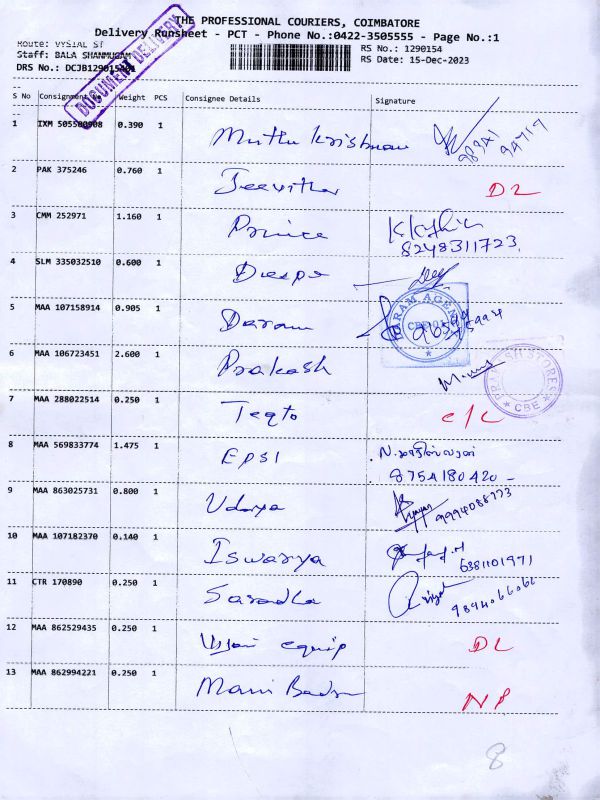 THE PROFESSIONAL COURIERS, COIMBATORE
Delivery Runsheet - PCT - Phone No.:0422-3505555 - Page No.:1
Route: VYSIAL ST
RS No.: 1290154
Staff: BALA SHANMUGAM
DRS No.: DCJB129015
RS Date: 15-Dec-2023
DOCUMENT DELIVERY
S No Consignment No Weight PCS Consignee Details Signature
1 IXM 505500908 0.390 1 Muthu Krishnan
2 PAK 375246 0.760 1 Jeevitha DL
3 CMM 252971 1.160 1 Prince
8248311723
4 SLM 335032510 0.600 1 Deepa
5 MAA 107158914 0.905 1 Daram
CBE
6 MAA 106723451 2.600 1 Prakash
STORES
CBE
7 MAA 288022514 0.250 1 Teqto c/c
8 MAA 569833774 1.475 1 EPSI
8754180420
9 MAA 863025731 0.800 1 Udaya 9994088773
10 MAA 107182370 0.140 1 Iswarya 6381101971
11 CTR 170890 0.250 1 Saradha 9894066066
12 MAA 862529435 0.250 1 equip DL
13 MAA 862994221 0.250 1 Mani NP
8